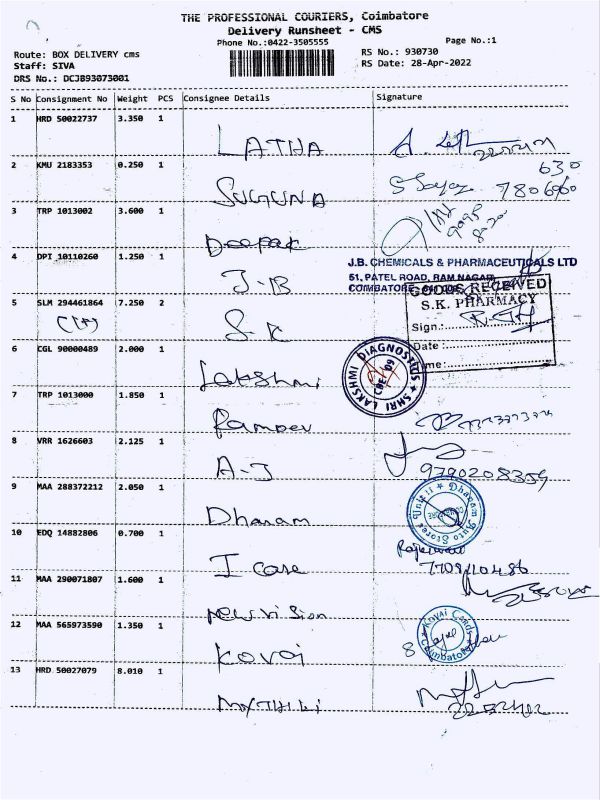 THE PROFESSIONAL COURIERS, Coimbatore
Delivery Runsheet - CMS
Phone No.:0422-3505555
Page No.:1
Route: BOX DELIVERY cms
RS No.: 930730
Staff: SIVA
RS Date: 28-Apr-2022
DRS No.: DCJB93073001
S No Consignment No Weight PCS Consignee Details Signature
1 HRD 50022737 3.350 1
LATHA
2 KMU 2183353 0.250 1
630
SUGUNA 7806960
3 TRP 1013002 3.600 1
Deepak
4 DPI 10110260 1.250 1
J.B. CHEMICALS & PHARMACEUTICALS LTD
51, PATEL ROAD, RAM NAGAR,
J-B COIMBATORE
GOODS RECEIVED
5 SLM 294461864 7.250 2
S.K. PHARMACY
S-K
Sign.:
Date:
6 CGL 90000489 2.000 1
SHRI LAKSHMI DIAGNOSTICS
CBE-09
Lakshmi
7 TRP 1013000 1.850 1
Ramdev
8 VRR 1626603 2.125 1
A-J 9790208359
9 MAA 288372212 2.050 1
Dharam Auto Stores Unit II
Dharam
10 EDQ 14882806 0.700 1
I care 7708410486
11 MAA 290071807 1.600 1
new vision
12 MAA 565973590 1.350 1
Kovai Cards
Coimbatore
Kovai
13 HRD 50027079 8.010 1
MYTHILI